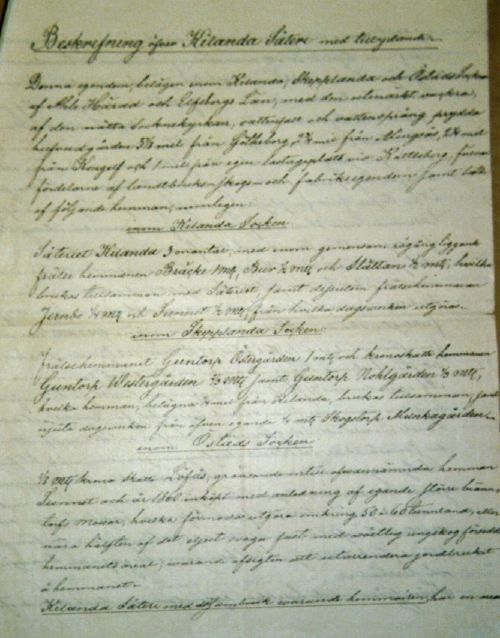 Beskrifning öfver Kilanda Säteri med tillydande
Denna egendom, belägen inom Kilanda, Skepplanda och Östads Socknar
af Ahle Härad och Elfsborgs Län, med den utmärkt vackra,
af den nätta sockenkyrkan, vattenfall och vattensprång prydda
hufvudgården 3 1/2 mil från Götheborg, 2 1/4 mil från Alingsås, 2 1/2 mil
från Kongelf och 1 mil från egen lastageplats vid Kattleberg, förenar
fördelarna af landtbruks- skogs- och fabriksegendom samt består
af följande hemman, nemligen:
inom Kilanda Socken
Säteriet Kilanda 3 mantal, med inom gemensam rågång liggande
frälse hemmanen Bräcke 1 mtl, Buer mtl och Slättan 1/2 mtl, hvilka
brukas tillsamman med Säteriet samt dessutom frälsehemmanen
mtl och mtl, från hvilka dagsverken utgöras.
inom Skepplanda Socken:
Frälsehemmanet Guntorp Östergården 1 mtl och kronoskatte hemmanen
Guntorp Westergården mtl samt Guntorp Nohlgården mtl,
hvilka hemman, belägna mil från Kilanda, brukas tillsamman, samt
njuta dagsverken från äfven egande mtl Skogstorp Munkagården
inom Östads Socken
mtl krono skatte Löfås, gränsande intill ofvannämnda hemman
och är 1860 inköpt med anledning af egande större bränn-
torfs Mossar, hvilka förmodas utgöra omkring 50 à 60 tunnland, eller
nära hälften af det eljest svaga fast med växtlig ungskog försedda
hemmanets areal; varande afsigten att utarrendera jordbruket
å hemmanet.
Kilanda Säteri med i sambruk varande hemmanen, har en areal